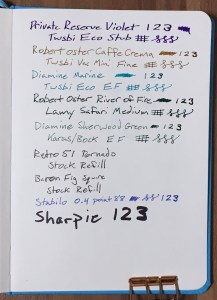 Private Reserve Violet 123
Twsbi Eco Stub
Robert Oster Caffe Crema
Twsbi Vac Mini Fine
Diamine Marine 123
Twsbi Eco EF
Robert Oster River of Fire
Lamy Safari Medium
Diamine Sherwood Green 123
Karas/Bock EF
Retro 51 Tornado
Stock Refill
Baron Fig Squire
Stock Refill
Stabilo 0.4 point 88 123
Sharpie 123